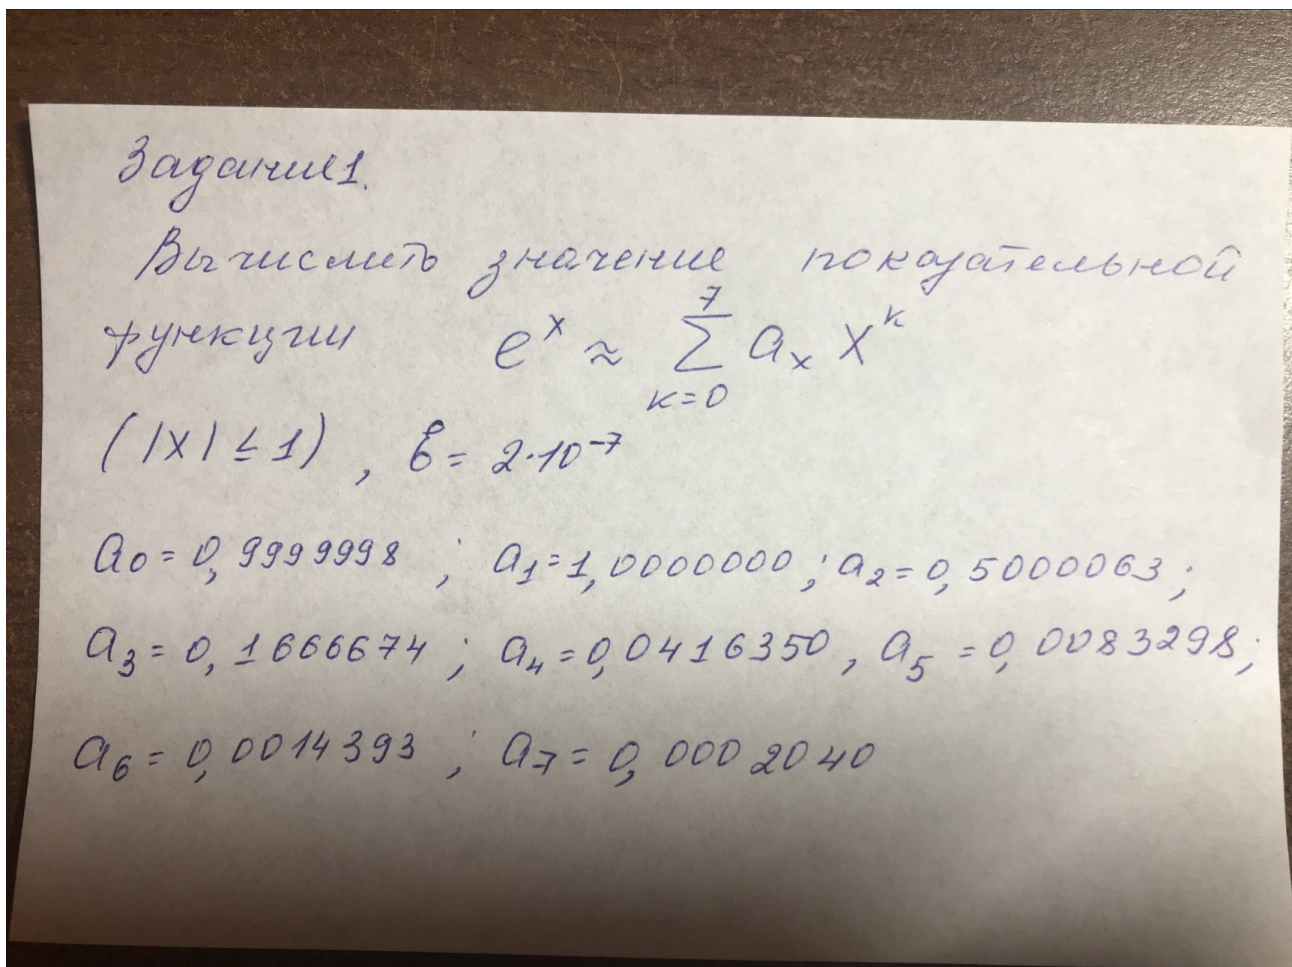 Задание1.
Вычислить значение показательной
функции e^x ≈ ∑_{k=0}^{7} a_x x^k
(|x| ≤ 1), ε = 2·10^{-7}
a_0 = 0,9999998 ; a_1 = 1,0000000 ; a_2 = 0,5000063 ;
a_3 = 0,1666674 ; a_4 = 0,0416350 , a_5 = 0,0083298 ;
a_6 = 0,0014393 ; a_7 = 0,0002040